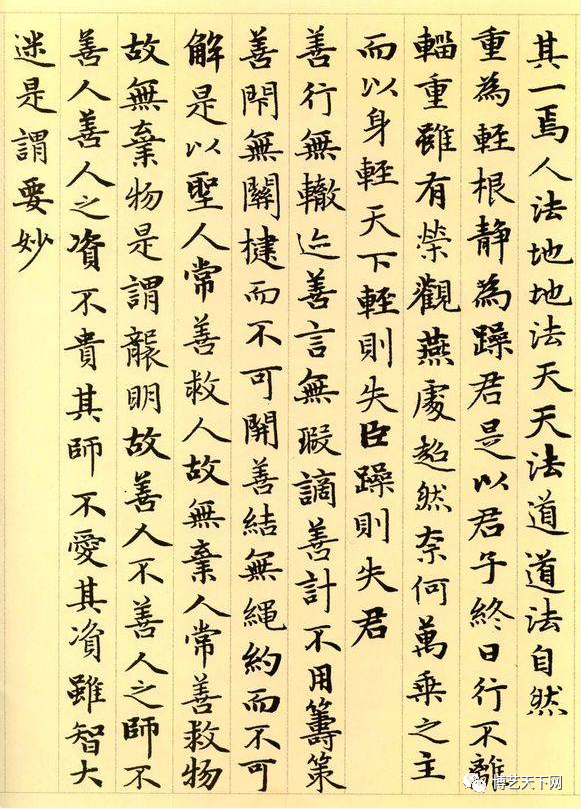 其一焉人法地地法天天法道道法自然
重為輕根静為躁君是以君子終日行不離
輜重雖有榮觀燕處超然柰何萬乗之主
而以身輕天下輕則失臣躁則失君
善行無轍迹善言無瑕謫善計不用籌策
善閇無關揵而不可開善結無繩約而不可
解是以聖人常善救人故無棄人常善救物
故無棄物是謂襲明故善人不善人之師不
善人善人之資不貴其師不愛其資雖智大
迷是謂要妙
博艺天下网